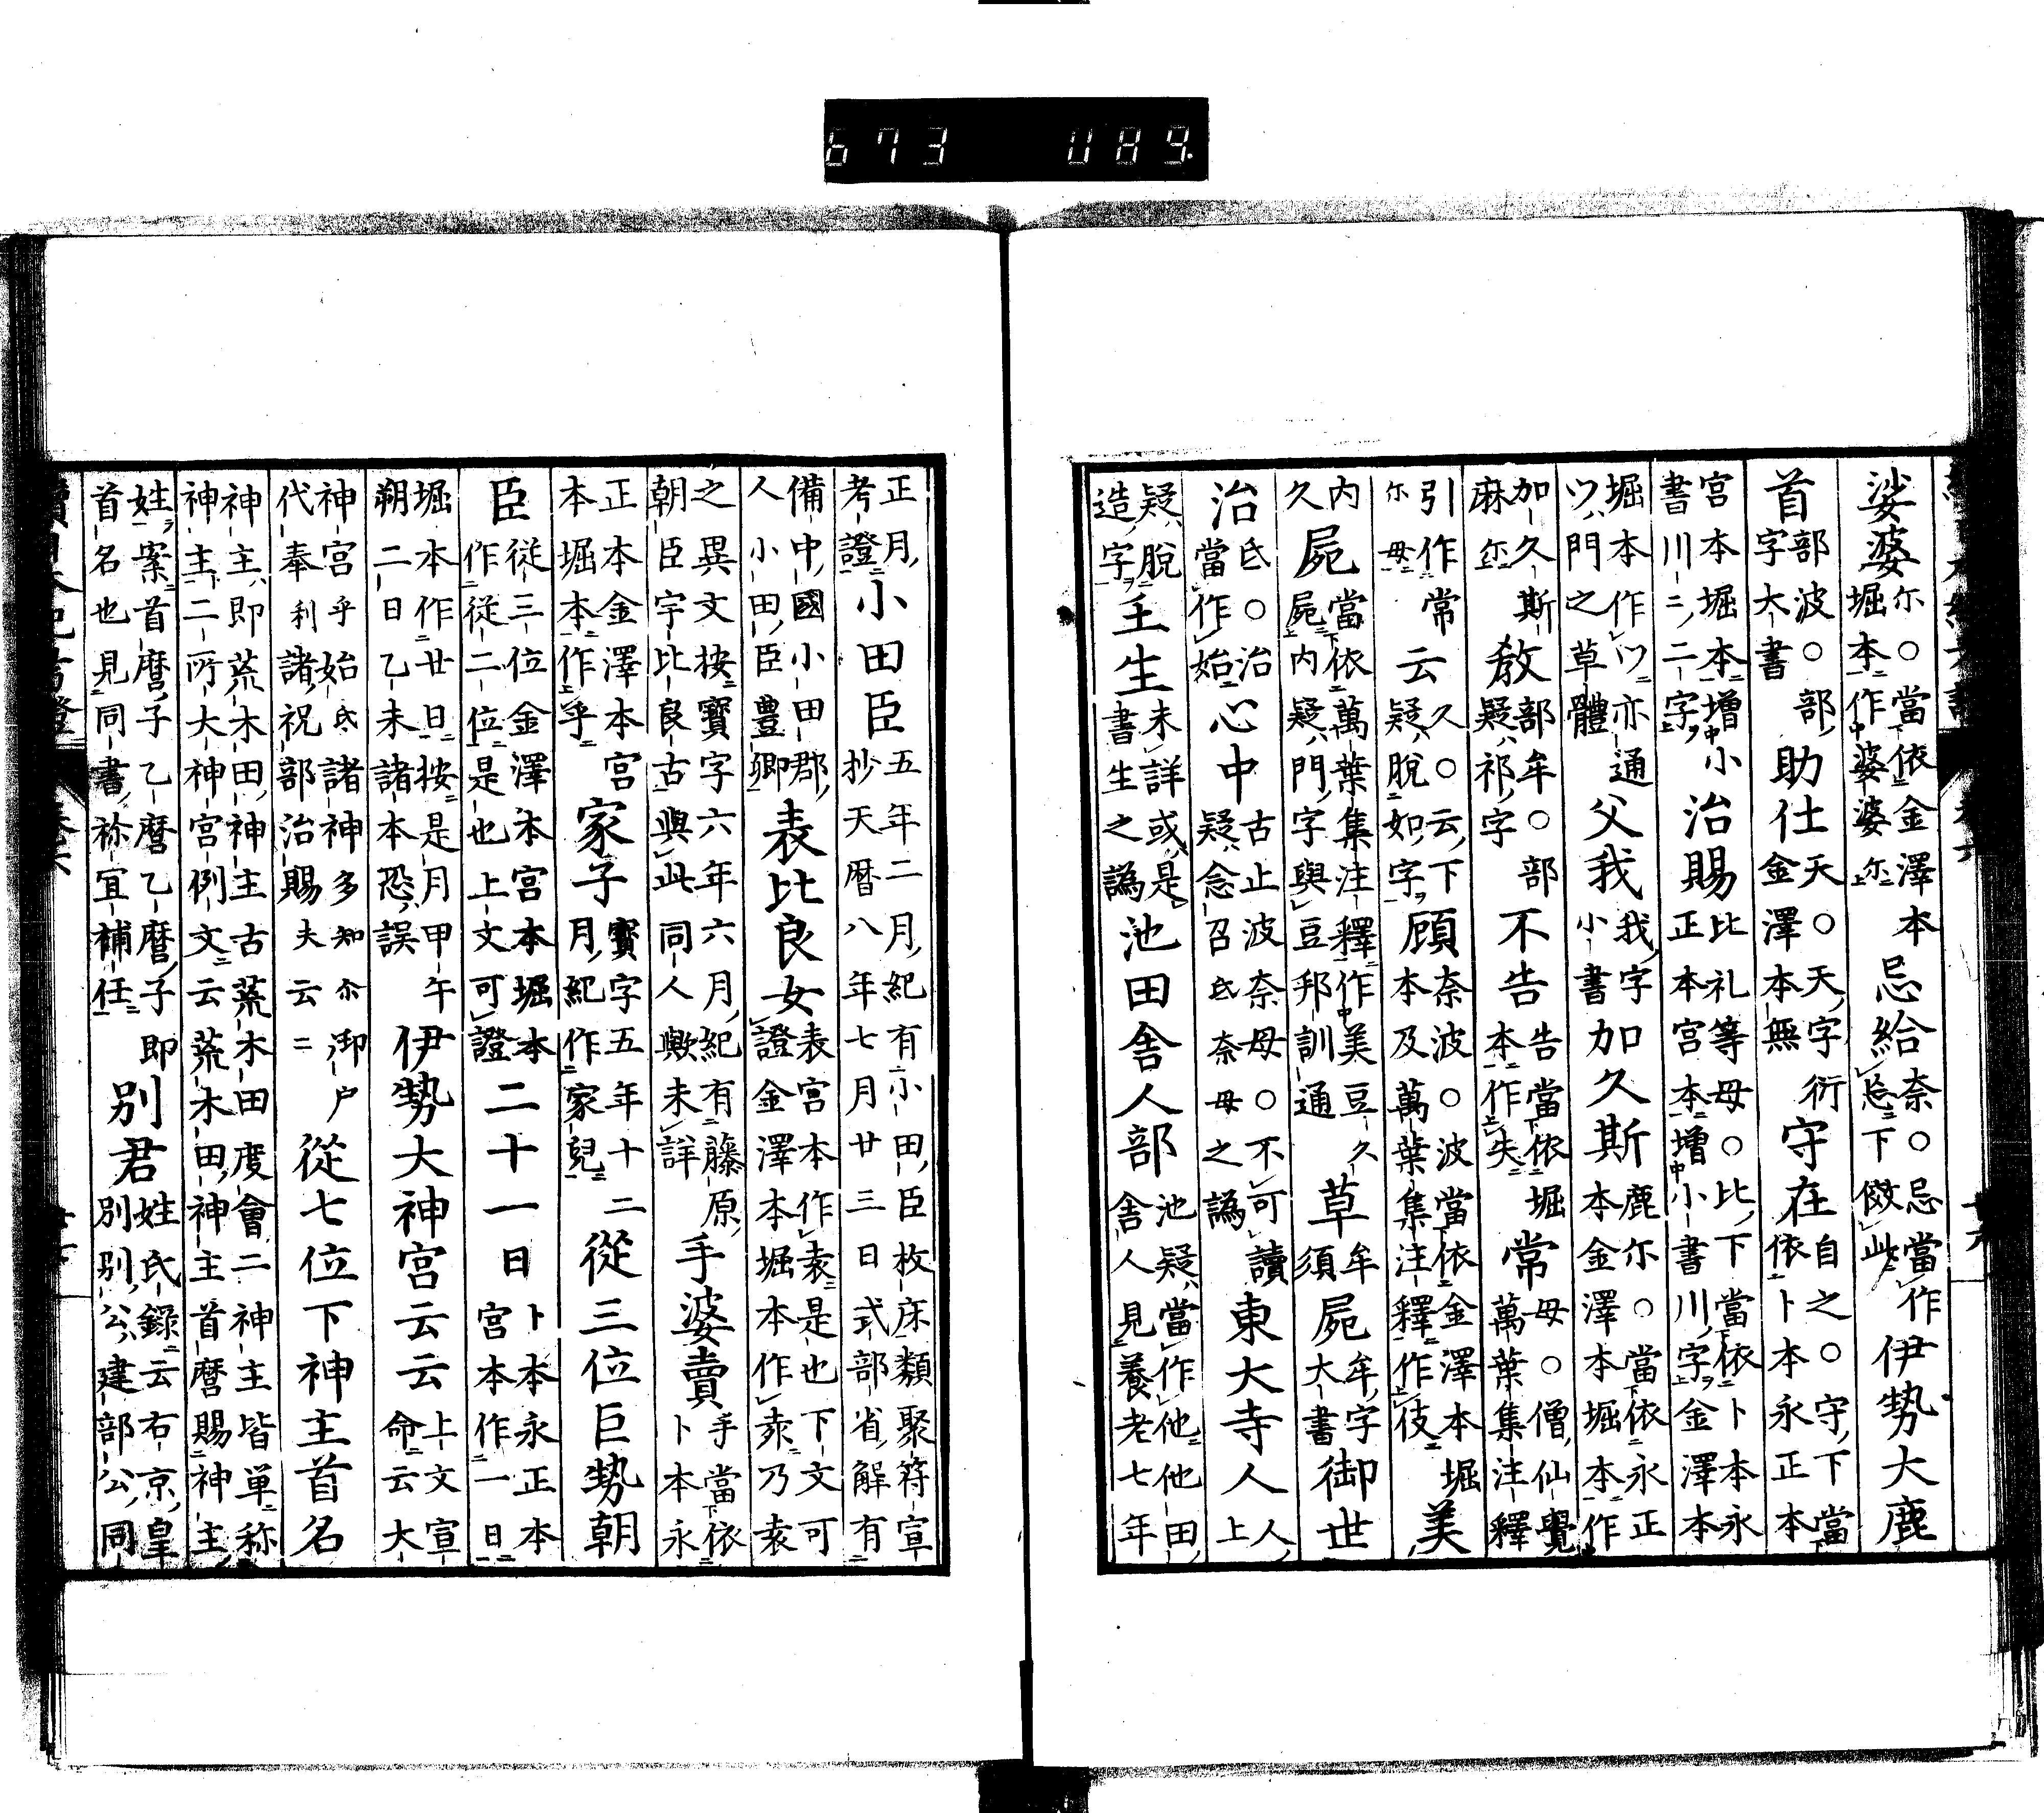 673 089.
娑婆尓○當依金澤本
堀本作婆婆尓忌給奈○忌當作
忘下傚此伊勢大鹿
首部波○部
字大書助仕天○天字衍
金澤本無守在自之○守下當
依卜本永正本
宮本堀本増小
書川ニ二字治賜比礼等母○比下當依卜本永
正本宮本増小書川字金澤本
堀本作ツ亦通
ツ門之草體父我我字
小書加久斯鹿尓○當依永正
本金澤本堀本作
加久斯
麻尓敎部牟○部
疑祁字不告告當依堀
本作亡失常母○僧仙覺
萬葉集注釋
引作常
尓母云久○云下
疑脫如字顧奈波○波當依金澤本堀
本及萬葉集注釋作伎美
内當依萬葉集注釋作美豆久
久屍屍内疑門字與豆邦訓通草牟
須屍牟字
大書御世
治氐○治
當作始心中古止波奈母○不可讀
疑念召氐奈母之譌東大寺人人
上
疑脫
造字壬生未詳或是
書生之譌池田舎人部池疑當作他他田
舎人見養老七年
正月
考證小田臣五年二月紀有小田臣枚床類聚符宣
抄天暦八年七月廿三日式部省解有
備中國小田郡
人小田臣豊郷表比良女表宮本作袁是也下文可
證金澤本堀本作𡊮乃袁
之異文按寳字六年六月紀有藤原
朝臣宇比良古與此同人歟未詳手婆賣手當依
卜本永
正本金澤本宮
本堀本作乎家子寳字五年十二
月紀作家兒從三位巨勢朝
臣從三位金澤本宮本堀本
作從二位是也上文可證二十一日卜本永正本
宮本作一日
堀本作廿日按是月甲午
朔二日乙未諸本恐誤伊勢大神宮云云上文宣
命云大
神宮乎始氐諸神多知尓御戸
代奉利諸祝部治賜夫云ニ從七位下神主首名
神主即荒木田神主古荒木田度會二神主皆単称
神主二所大神宮例文云荒木田神主首麿賜神主
姓案首麿子乙麿乙麿子即
首名也見同書祢宜補任別君姓氏録云右京皇
別別公建部公同